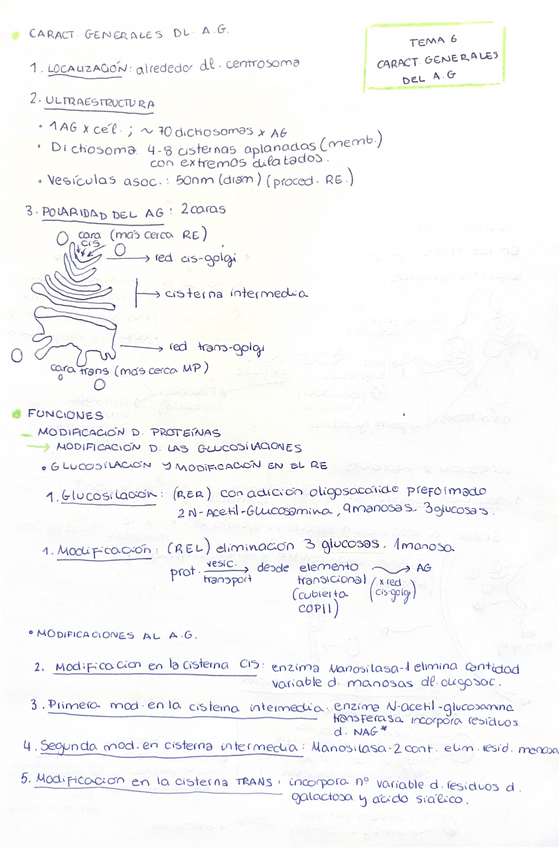 CARACT. GENERALES DL. A.G.
TEMA 6
CARACT. GENERALES
DEL A.G
1. LOCALIZACIÓN: alrededor dl. centrosoma
2. ULTRAESTRUCTURA
• 1AG x cél. ; ~ 70 dichosomas x AG
• Dichosoma 4-8 cisternas aplanadas (memb.)
con extremos dilatados.
• Vesículas asoc.: 50nm (diam) (proced. RE.)
3. POLARIDAD DEL AG: 2 caras
cara (más cerca RE)
cis
→ red cis-golgi
→ cisterna intermedia
→ red trans-golgi
cara trans (más cerca MP)
FUNCIONES
- MODIFICACIÓN D. PROTEÍNAS
→ MODIFICACIÓN D. LAS GLUCOSILACIONES
• GLUCOSILACIÓN Y MODIFICACIÓN EN EL RE
1. Glucosilación: (RER) con adición oligosacárido preformado
2 N-Acetil-Glucosamina, 9 manosas. 3 glucosas.
1. Modificación: (REL) eliminación 3 glucosas. 1 manosa
prot. vesic. transport → desde elemento → AG
transicional (x red
(cubierta cis-golgi)
COPII)
• MODIFICACIONES AL A.G.
2. Modificación en la cisterna CIS: enzima Manosilasa-1 elimina cantidad
variable d. manosas dl. oligosac.
3. Primera mod. en la cisterna intermedia: enzima N-acetil-glucosamina
transferasa incorpora residuos
d. NAG*
4. Segunda mod. en cisterna intermedia: Manosilasa-2 cont. elim. resid. manosa
5. Modificación en la cisterna TRANS: incorpora nº variable d. residuos d.
galactosa y ácido siálico.